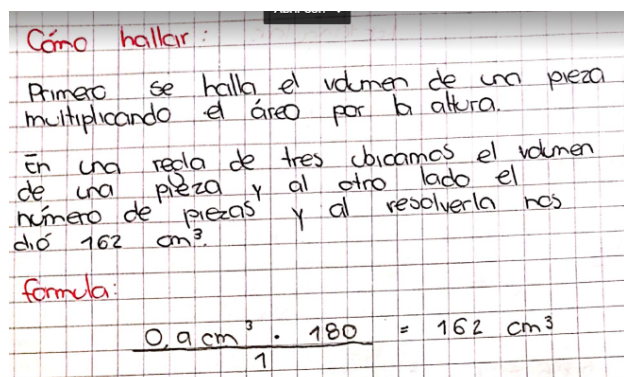 Cómo hallar:
Primero se halla el volumen de una pieza
multiplicando el área por la altura.
En una regla de tres ubicamos el volumen
de una pieza y al otro lado el
número de piezas y al resolverla nos
dió 162 cm³.
formula:
0,9 cm³ . 180 = 162 cm³
1